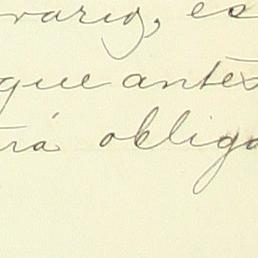 vario, es
que antes
rá obliga